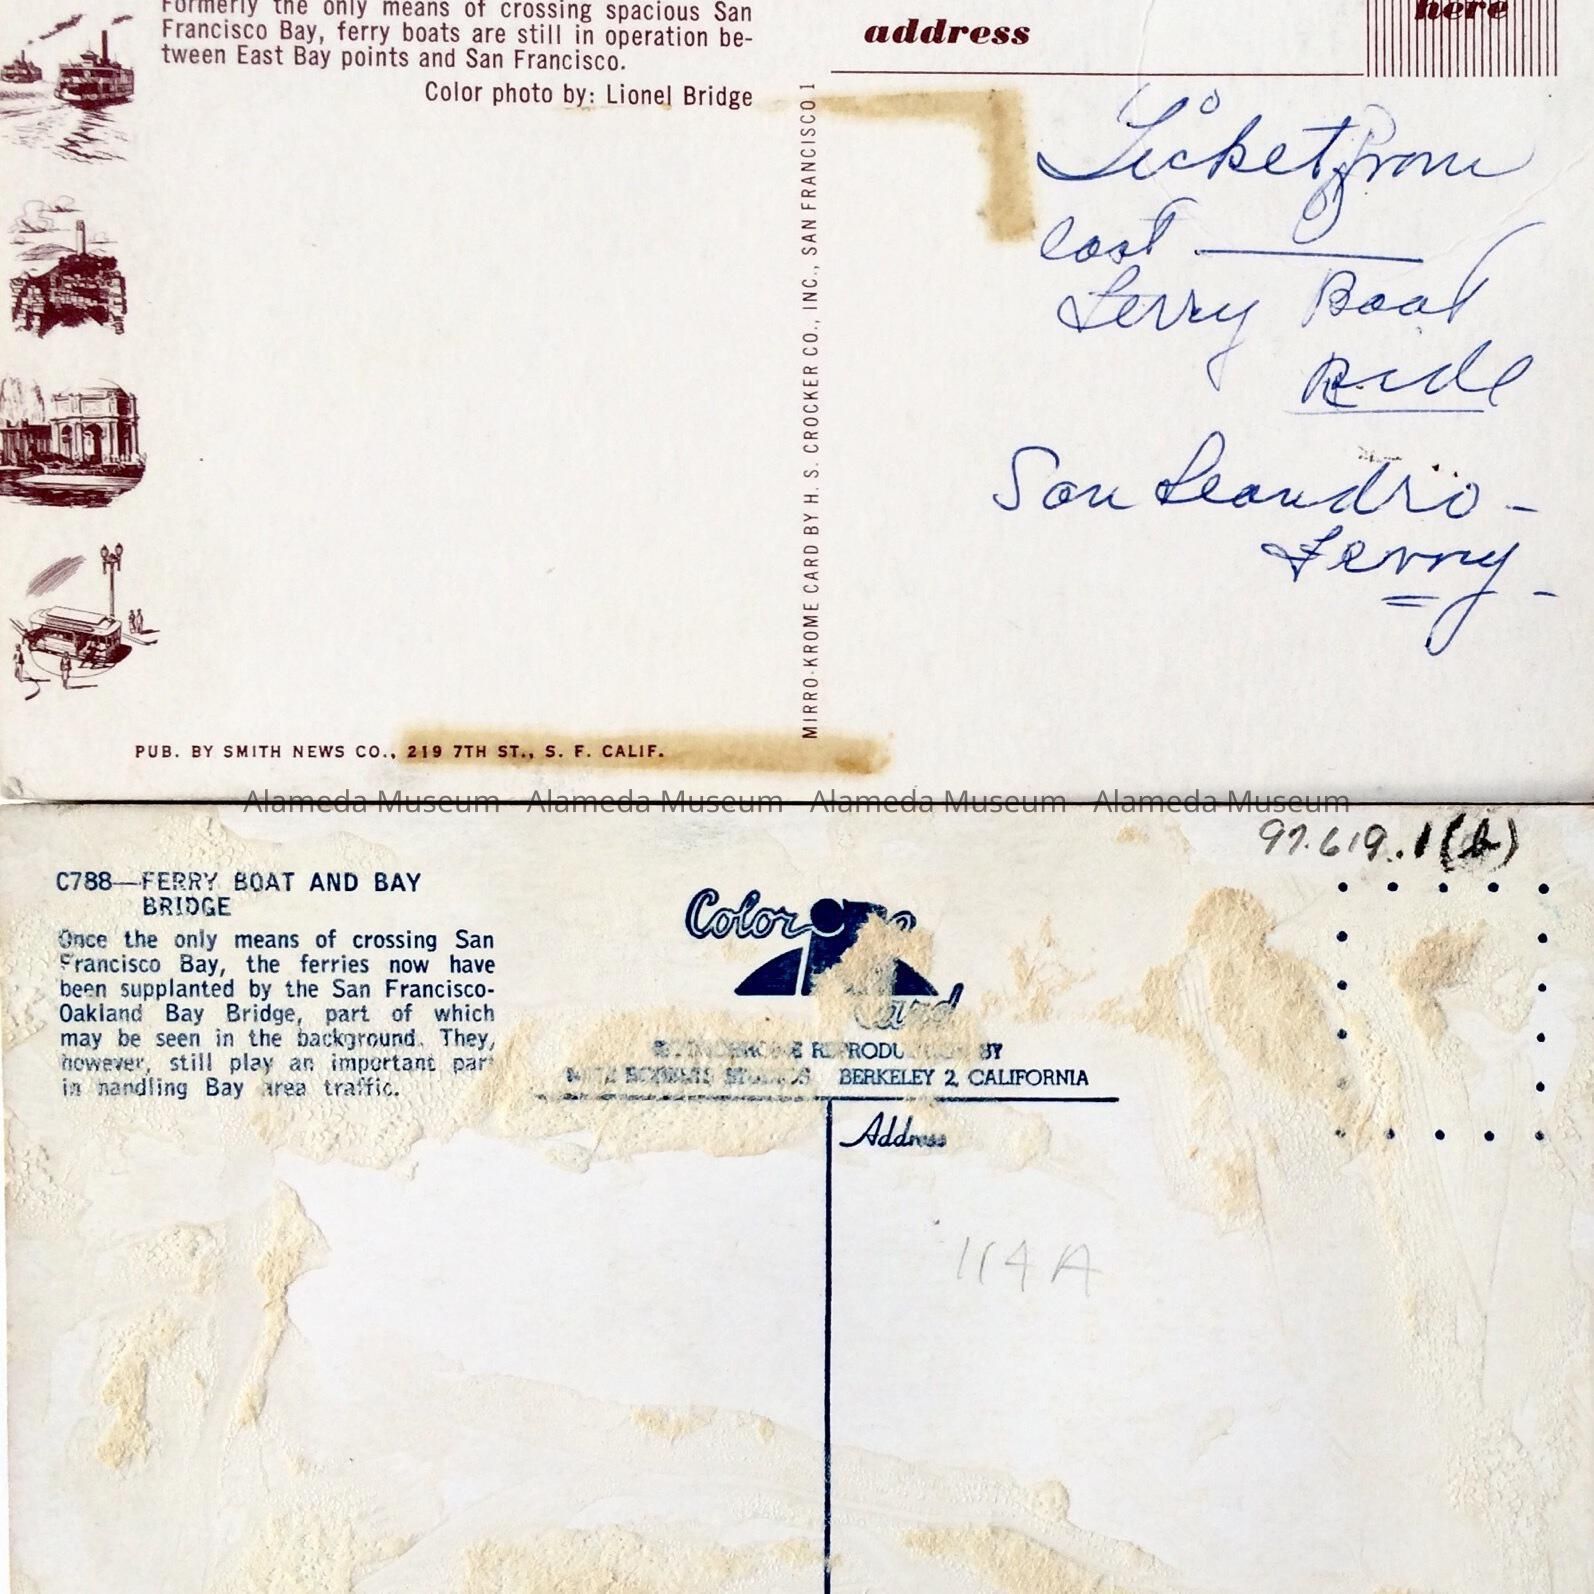 Formerly the only means of crossing spacious San
Francisco Bay, ferry boats are still in operation be-
tween East Bay points and San Francisco.
Color photo by: Lionel Bridge
address
here
MIRRO-KROME CARD BY H. S. CROCKER CO., INC., SAN FRANCISCO 1
Ticket from
last
Ferry Boat
Ride
San Leandro -
Ferry -
PUB. BY SMITH NEWS CO., 219 7TH ST., S. F. CALIF.
Alameda Museum Alameda Museum Alameda Museum Alameda Museum
97.619.1(b)
C788—FERRY BOAT AND BAY
BRIDGE
Once the only means of crossing San
Francisco Bay, the ferries now have
been supplanted by the San Francisco-
Oakland Bay Bridge, part of which
may be seen in the background. They,
however, still play an important part
in handling Bay area traffic.
Color
Card
REPRODUCTION BY
STUDIOS BERKELEY 2, CALIFORNIA
Address
114A